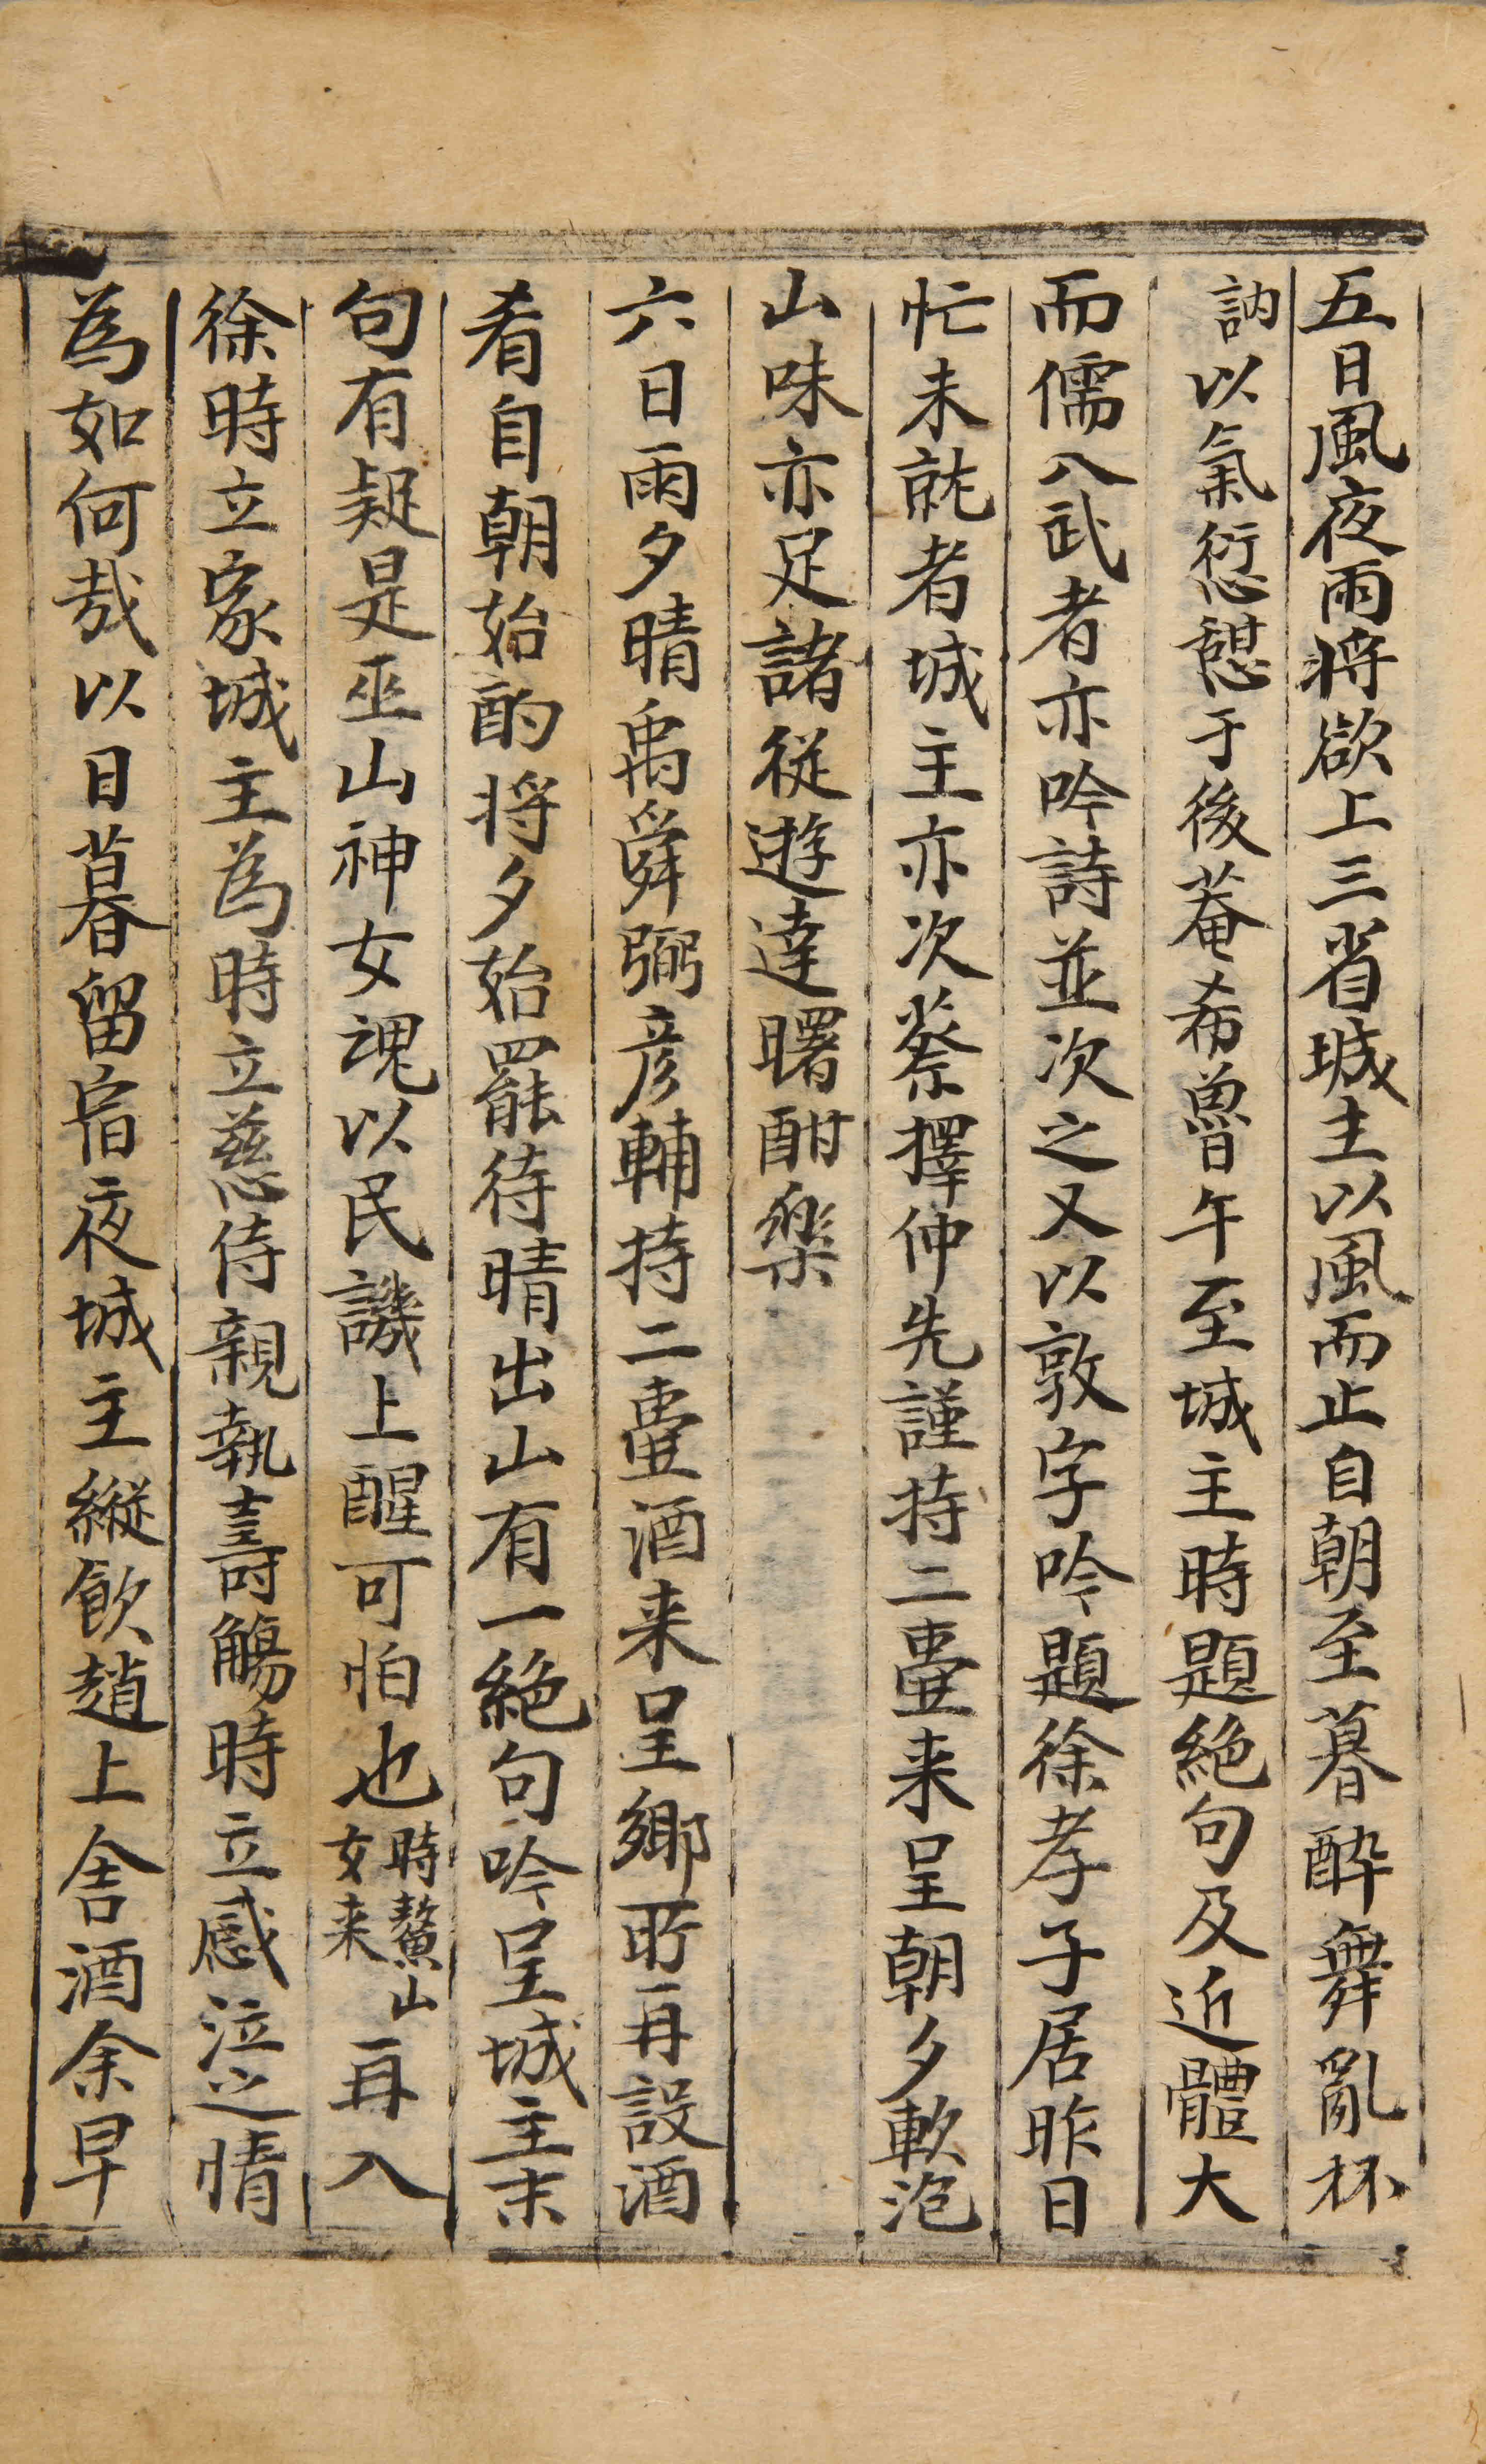 五日風夜雨将欲上三省城主以風而止自朝至暮酔舞亂杯
訥以氣愆憇于後菴希曾午至城主時題絶句及近體大
而儒八武者亦吟詩並次之又以敦字吟題徐孝子居昨日
忙未就者城主亦次蔡擇仲先謹持二壷来呈朝夕軟泡
山味亦足諸従遊達曙酣樂
六日雨夕晴禹舜弼彦輔持二壷酒来呈郷所再設酒
肴自朝始酌将夕始罷待晴出山有一絶句吟呈城主末
句有疑是巫山神女魂以民譏上醒可怕也時鰲山女来再入
徐時立家城主為時立慈侍親執壽觴時立感泣之情
為如何哉以日暮留宿夜城主縱飲趙上舍酒余早